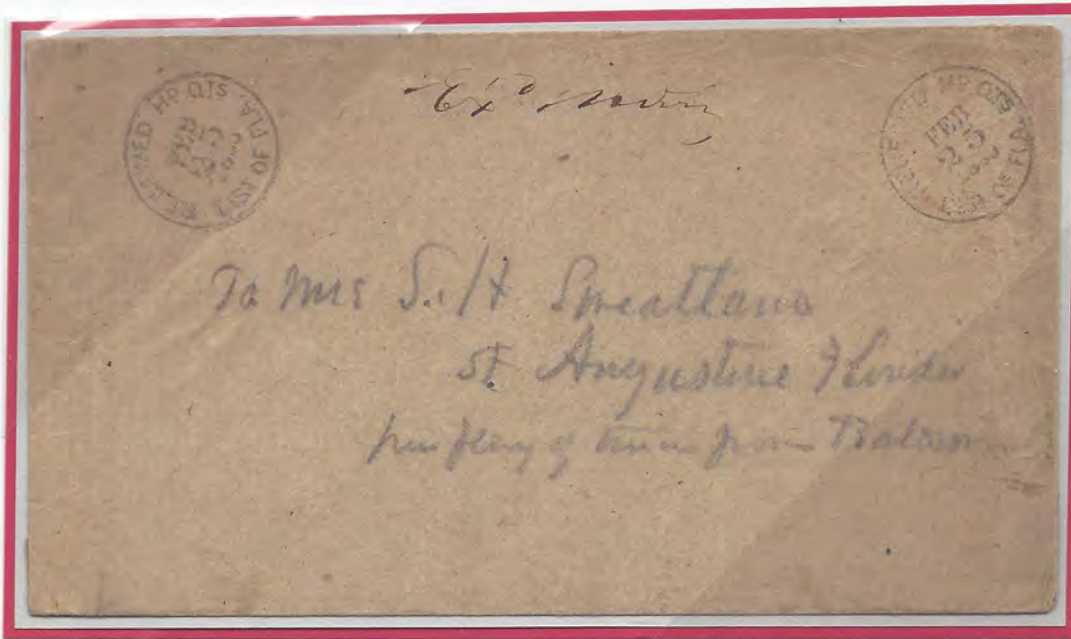 Ex'd
RECEIVED HD QTS DIST OF FLA.
FEB 25
RECEIVED HD QTS DIST OF FLA.
FEB 25
To Mrs S. H Sweatland
St Augustine Florida
per flag of truce from Baldwin